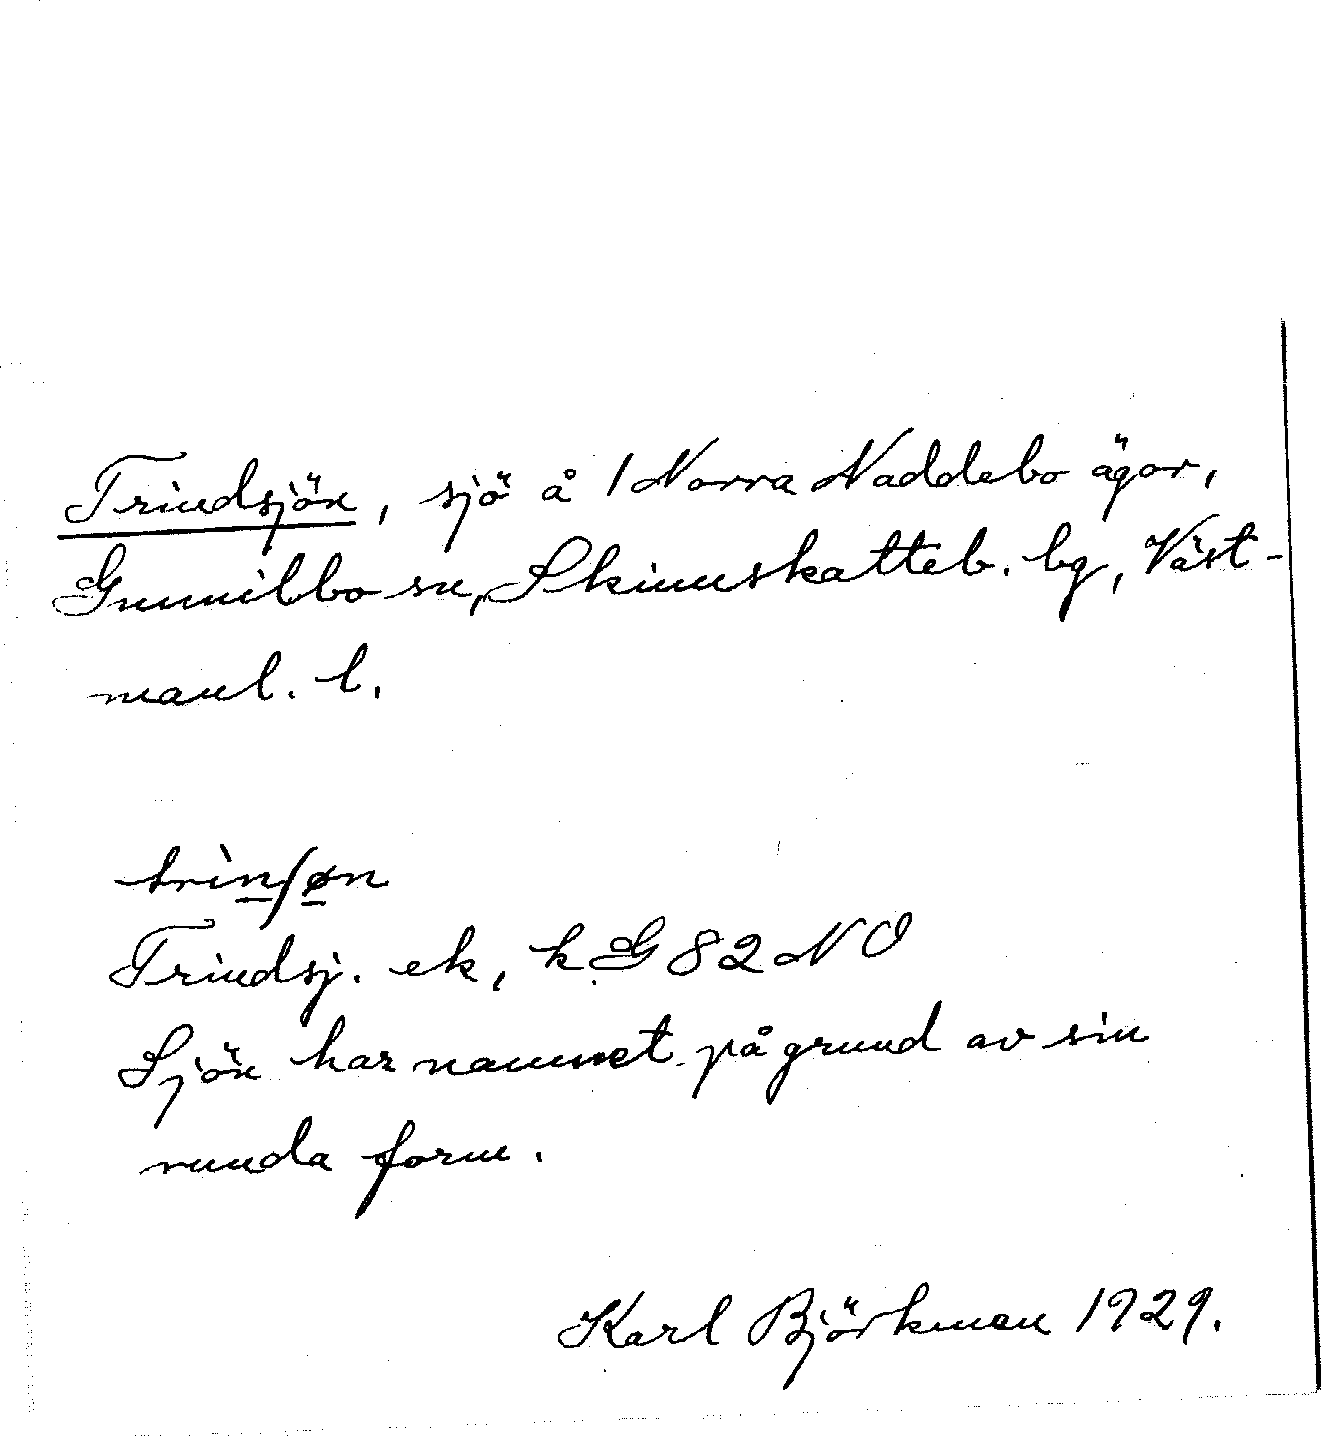 Trindsjön, sjö å 1 Norra Naddebo ägor,
Gunnilbo sn, Skinnskatteb. bg, Väst-
manl. l.
trìn/øn
Trindsj. ek, k G 82 NO
Sjön har namnet på grund av sin
runda form.
Karl Björkman 1929.